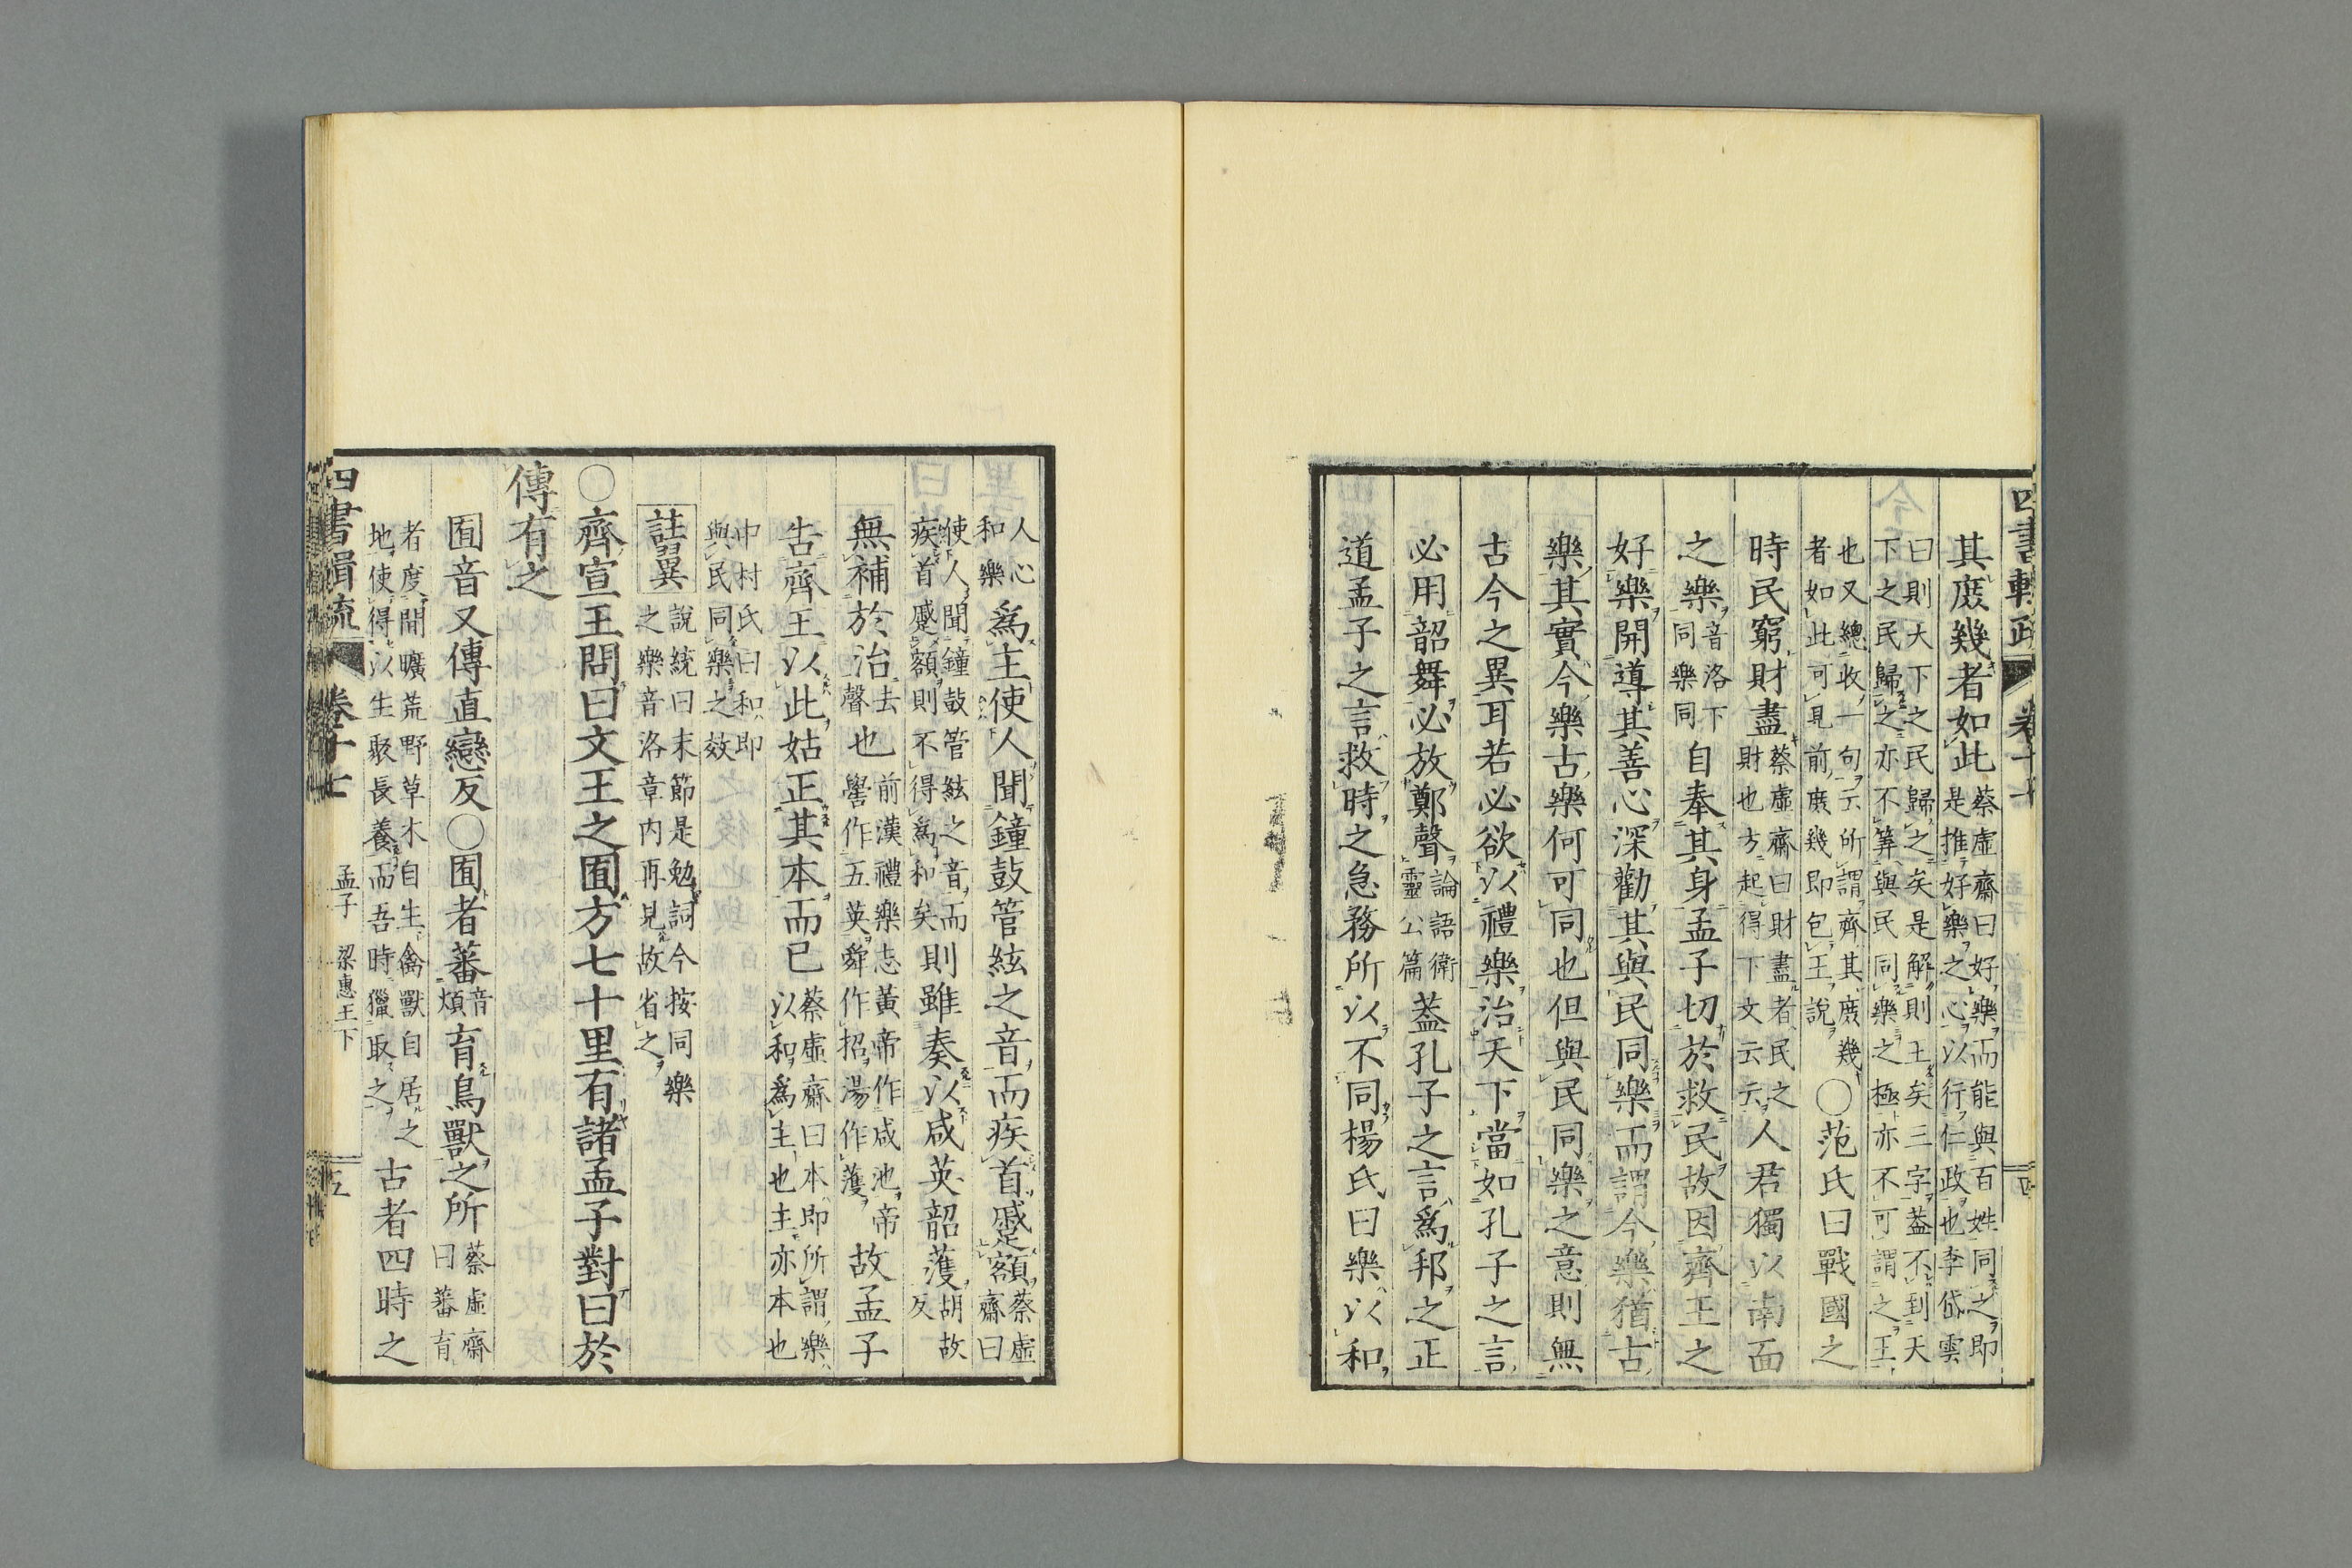 其庶幾者如此蔡虛齋曰好樂而能與百姓同之即是推好樂之心以行仁政也李岱雲
曰則大下之民歸之矣是解則王矣三字蓋不到天下之民歸之亦不筭與民同樂之極亦不可謂之王
也又總收一句云所謂齊其庶幾者如此可見前庶幾即包王說○范氏曰戰國之
時民窮財盡蔡虛齋曰財盡者民之財也方起得下文云云人君獨以南面
之樂音洛下同樂同自奉其身孟子切於救民故因齊王之
好樂開導其善心深勸其與民同樂而謂今樂猶古
樂其實今樂古樂何可同也但與民同樂之意則無
古今之異耳若必欲以禮樂治天下當如孔子之言
必用韶舞必放鄭聲論語衛靈公篇蓋孔子之言爲邦之正
道孟子之言救時之急務所以不同楊氏曰樂以和
人心和樂爲主使人聞鐘鼓管絃之音而疾首蹙額蔡虛齋曰
使人聞鐘鼓管絃之音而疾首蹙額則不得爲和矣則雖奏以咸英韶濩胡故反
無補於治去聲也前漢禮樂志黃帝作咸池帝嚳作五英舜作招湯作濩故孟子
告齊王以此姑正其本而已蔡虛齋曰本即所謂樂以和爲主也主亦本也
中村氏曰和即與民同樂之效
註異說統曰末節是勉詞今按同樂之樂音洛章内再見故省之
○齊宣王問曰文王之囿方七十里有諸孟子對曰於
傳有之
囿音又傳直戀反○囿者蕃音煩育鳥獸之所蔡虛齋曰蕃育
者度閒曠荒野草木自生禽獸自居之地使得以生聚長養而吾時獵取之古者四時之
四書輯疏 卷十七 孟子 梁惠王下 五